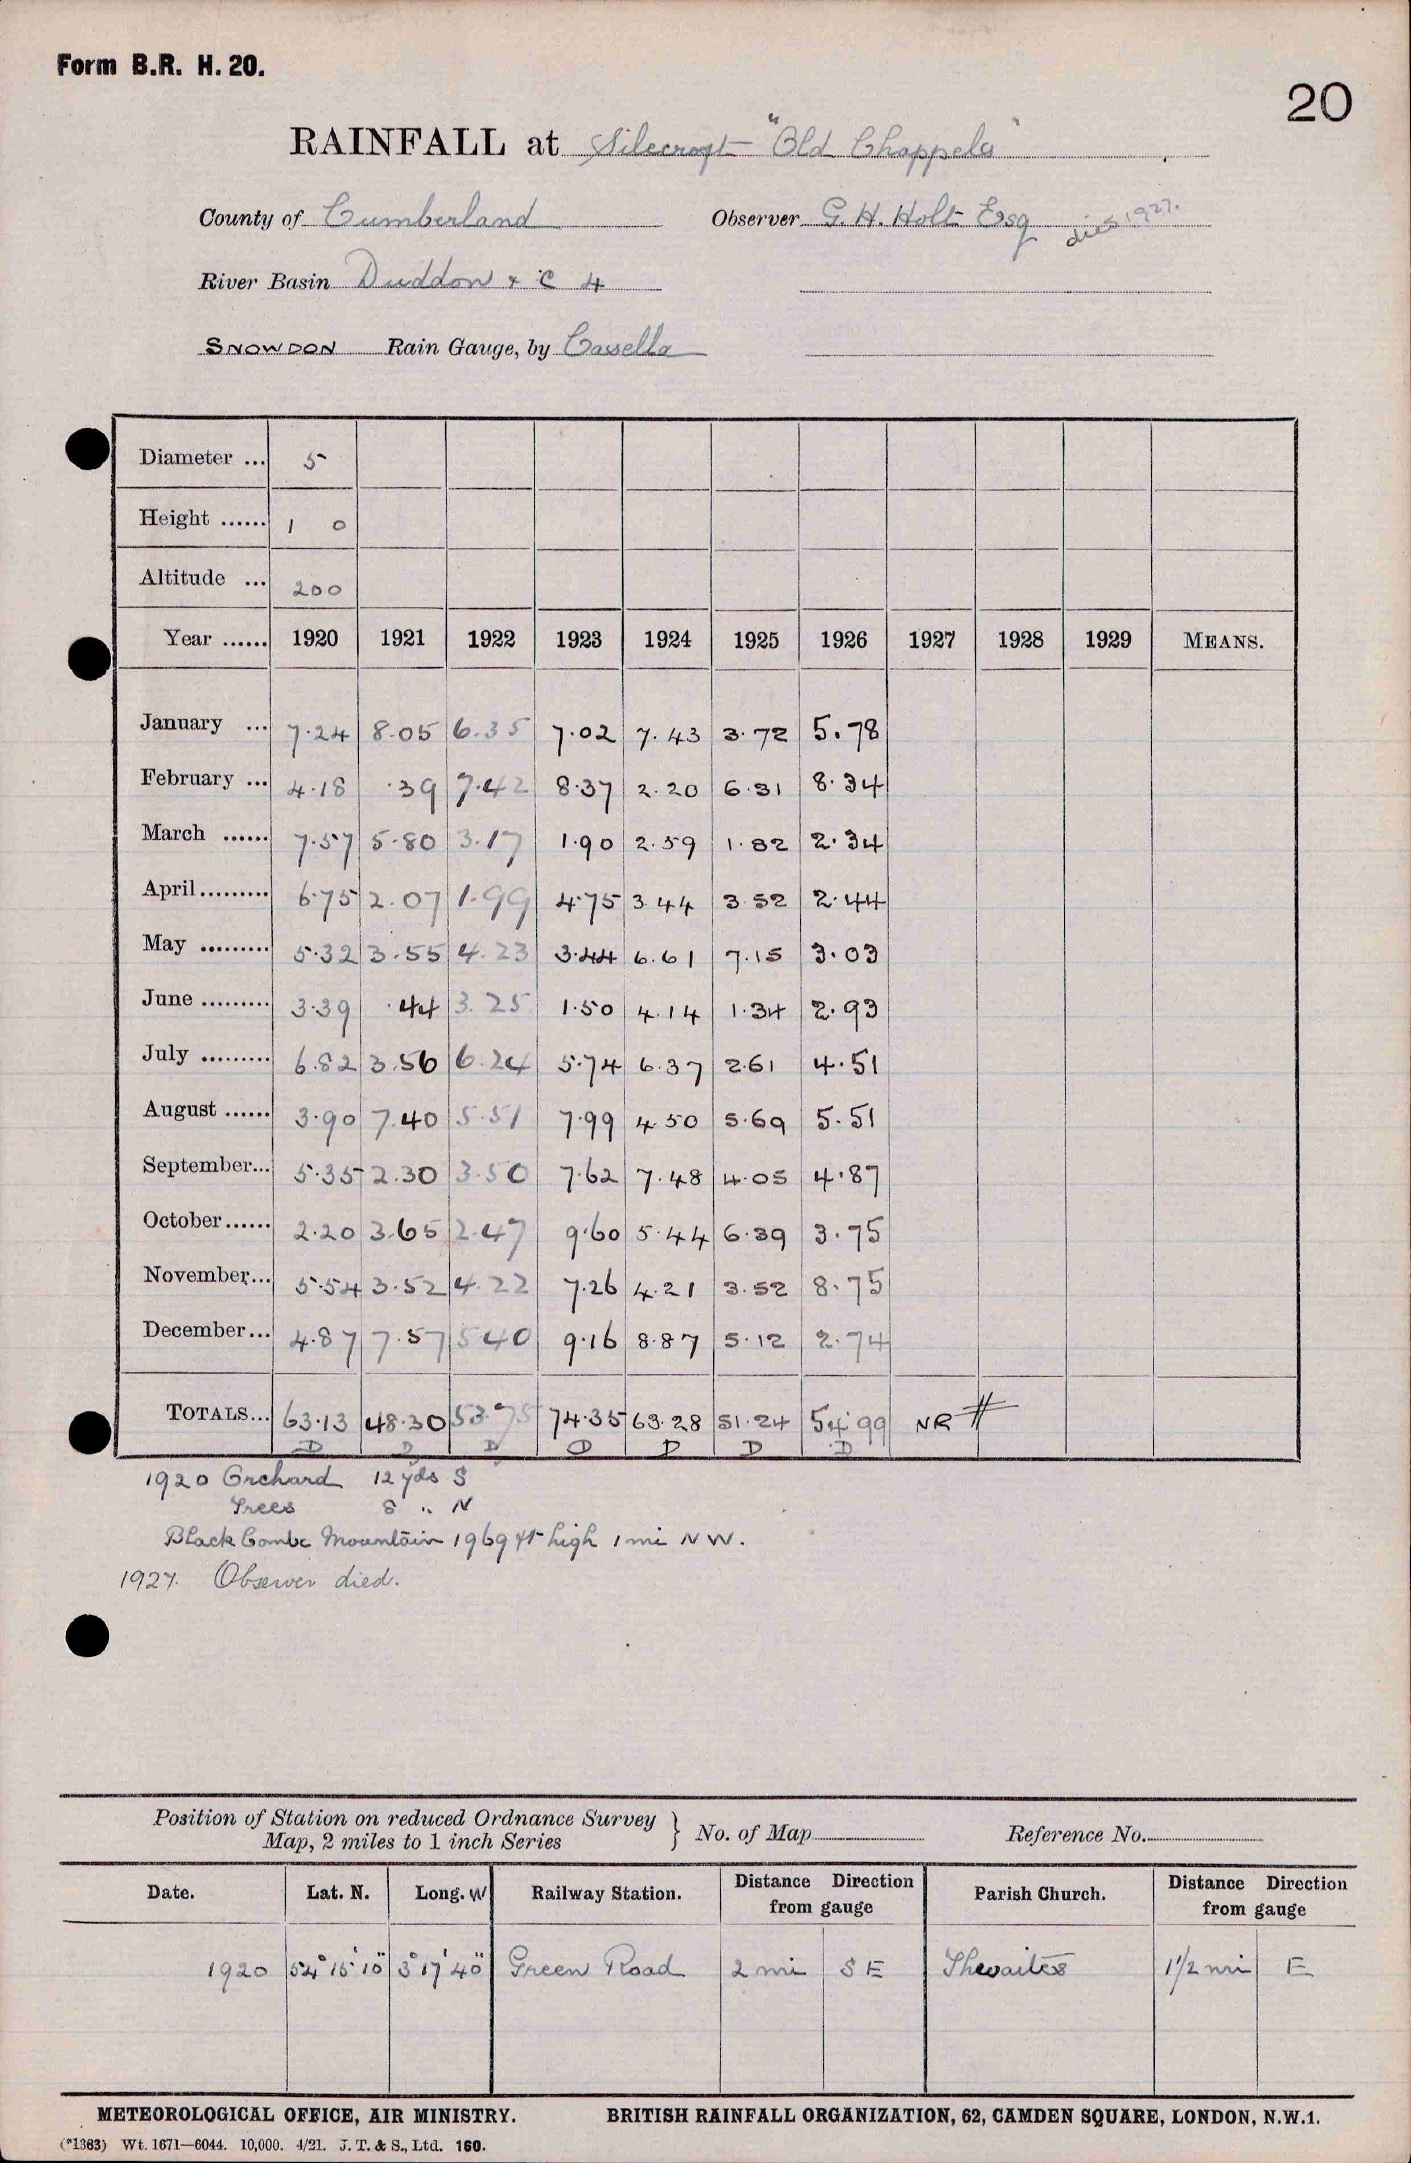 Form B.R. H. 20.
20
RAINFALL at Silecroft "Old Chappels"
County of Cumberland Observer G. H. Holt Esq died 1927.
River Basin Duddon & C 4
SNOWDON Rain Gauge, by Cassella
Diameter ... 5
Height ...... 1 0
Altitude ... 200
Year ...... 1920 1921 1922 1923 1924 1925 1926 1927 1928 1929 MEANS.
January ... 7.24 8.05 6.35 7.02 7.43 3.72 5.78
February ... 4.18 .39 7.42 8.37 2.20 6.31 8.34
March ...... 7.57 5.80 3.17 1.90 2.59 1.82 2.34
April......... 6.75 2.07 1.99 4.75 3.44 3.52 2.44
May ......... 5.32 3.55 4.23 3.44 6.61 7.15 3.03
June ......... 3.39 .44 3.25 1.50 4.14 1.34 2.93
July ......... 6.82 3.56 6.24 5.74 6.37 2.61 4.51
August ...... 3.90 7.40 5.51 7.99 4.50 5.69 5.51
September... 5.35 2.30 3.50 7.62 7.48 4.05 4.87
October...... 2.20 3.65 2.47 9.60 5.44 6.39 3.75
November... 5.54 3.52 4.22 7.26 4.21 3.52 8.75
December... 4.87 7.57 5 40 9.16 8.87 5.12 2.74
TOTALS... 63.13 48.30 53.75 74.35 63.28 51.24 54.99 NR #
D D D D D D D
1920 Orchard 12 yds S
Trees 8 " N
Black Combe Mountain 1969 ft high 1 mi N W.
1927. Observer died.
Position of Station on reduced Ordnance Survey
Map, 2 miles to 1 inch Series } No. of Map Reference No.
Date. Lat. N. Long. W Railway Station. Distance Direction from gauge Parish Church. Distance Direction from gauge
1920 54° 15' 10" 3° 17' 40" Green Road 2 mi S E Thwaites 1 1/2 mi E
METEOROLOGICAL OFFICE, AIR MINISTRY. BRITISH RAINFALL ORGANIZATION, 62, CAMDEN SQUARE, LONDON, N.W.1.
(*1383) Wt. 1671—6044. 10,000. 4/21. J. T. & S., Ltd. 160.